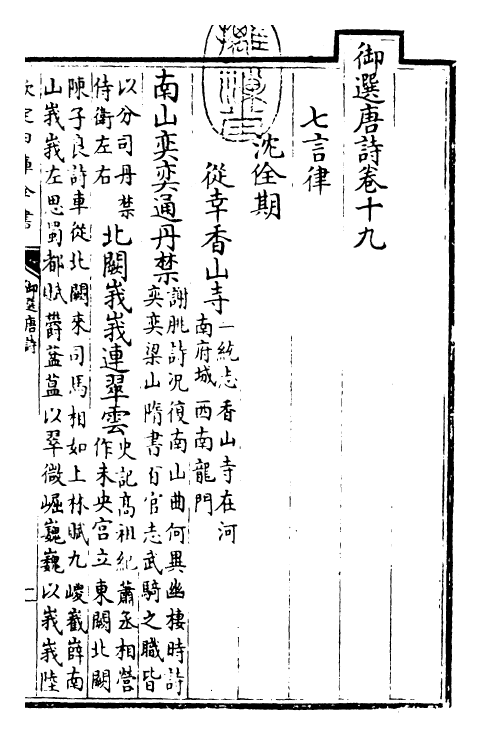 御選唐詩卷十九
七言律
沈佺期
從幸香山寺一統志香山寺在河
南府城西南龍門
南山奕奕通丹禁謝朓詩況復南山曲何異幽棲時詩
奕奕梁山隋書百官志武騎之職皆
以分司丹禁
侍衛左右
北闕峩峩連翠雲史記高祖紀蕭丞相營
作未央宮立東闕北闕
陳子良詩車從北闕來司馬相如上林賦九嵕嶻嶭南
山峩峩左思蜀都賦欝葐蒕以翠微崛巍巍以峩峩陸
欽定四庫全書
御選唐詩
一